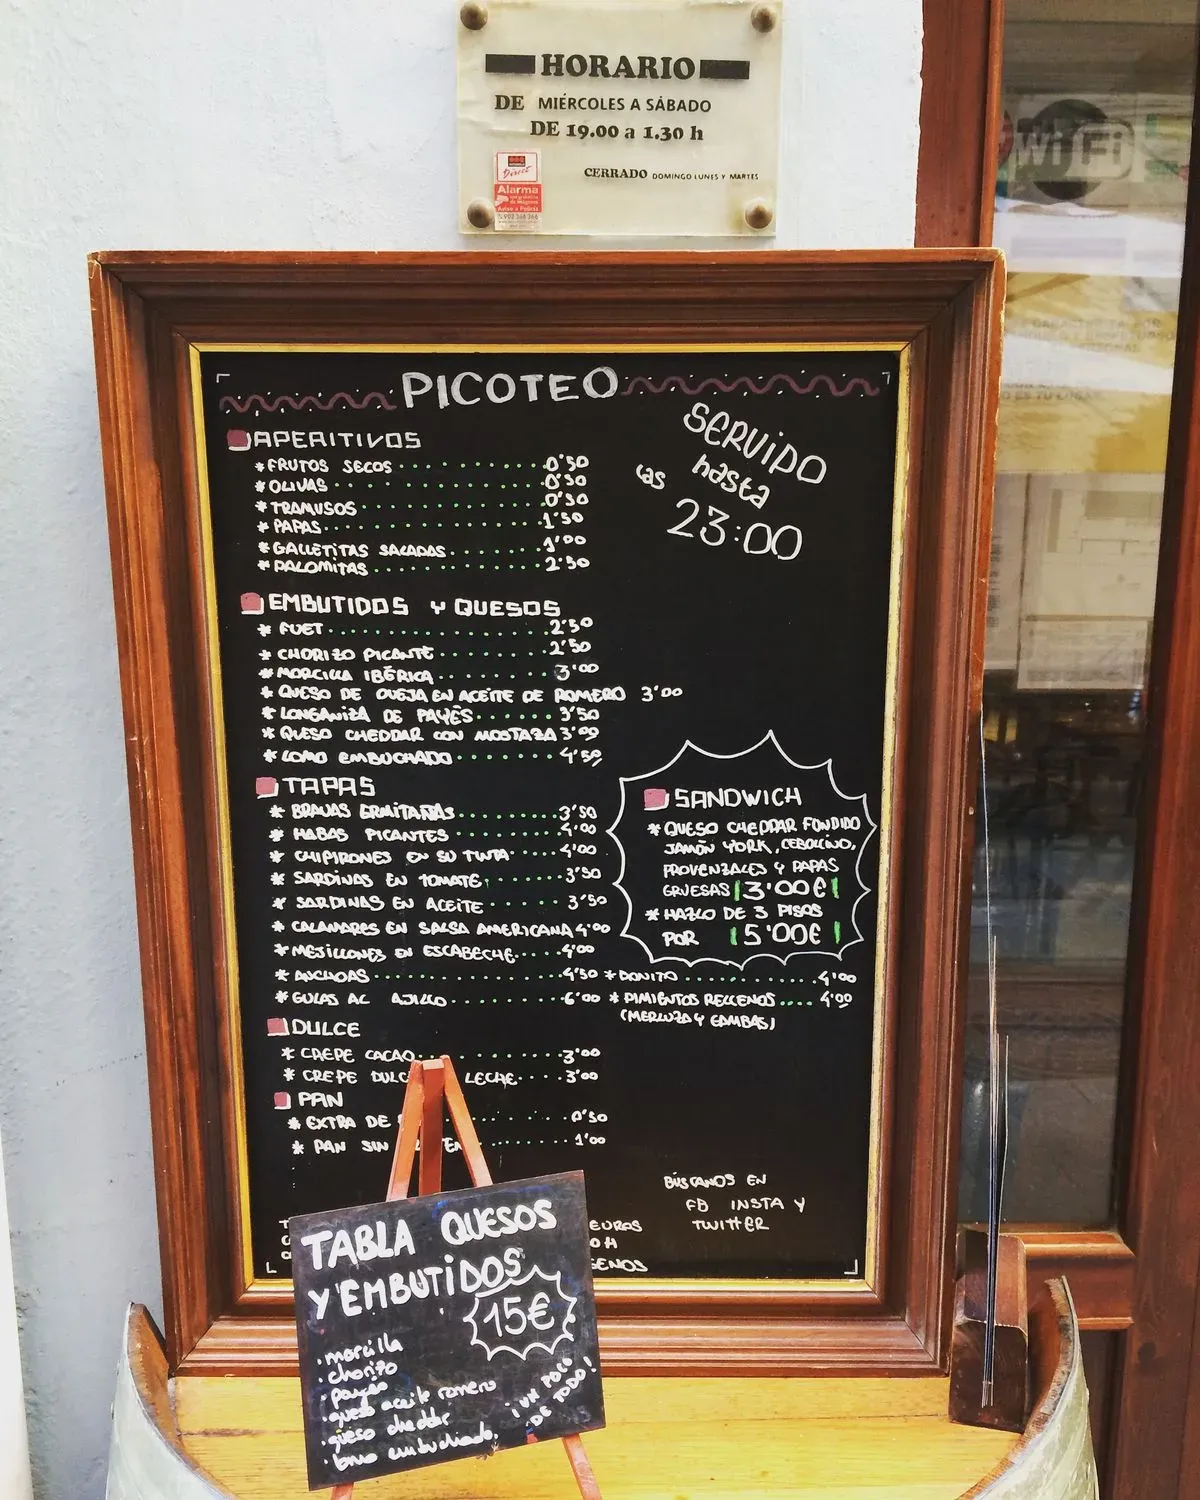 HORARIO
DE MIÉRCOLES A SÁBADO
DE 19.00 a 1.30 h
CERRADO DOMINGO LUNES Y MARTES
Direct
Alarma
Aviso a Policía
Wi Fi
PICOTEO
SERVIDO
hasta
las
23:00
APERITIVOS
*FRUTOS SECOS 0'50
*OLIVAS 0'50
*TRAMUSOS 0'50
*PAPAS 1'50
*GALLETITAS SALADAS 1'00
*PALOMITAS 2'50
EMBUTIDOS Y QUESOS
*FUET 2'50
*CHORIZO PICANTE 2'50
*MORCILLA IBÉRICA 3'00
*QUESO DE OVEJA EN ACEITE DE ROMERO 3'00
*LONGANIZA DE PAYÉS 3'50
*QUESO CHEDDAR CON MOSTAZA 3'00
*LOMO EMBUCHADO 4'50
TAPAS
*BRAVAS ERMITAÑAS 3'50
*HABAS PICANTES 4'00
*CHIPIRONES EN SU TINTA 4'00
*SARDINAS EN TOMATE 3'50
*SARDINAS EN ACEITE 3'50
*CALAMARES EN SALSA AMERICANA 4'00
*MEJILLONES EN ESCABECHE 4'00
*ANCHOAS 4'50
*GULAS AL AJILLO 6'00
SANDWICH
*QUESO CHEDDAR FUNDIDO
JAMÓN YORK, CEBOLLINO,
PROVENZALES Y PAPAS
GRUESAS 3'00€
*HAZLO DE 3 PISOS
POR 5'00€
*BONITO 4'00
*PIMIENTOS RELLENOS 4'00
(MERLUZA Y GAMBAS)
DULCE
*CREPE CACAO 3'00
*CREPE DULC LECHE 3'00
PAN
*EXTRA DE 0'50
*PAN SIN TEN 1'00
BÚSCANOS EN
FB INSTA Y
TWITTER
EUROS
GENOS
TABLA QUESOS
Y EMBUTIDOS
15€
·morcilla
·chorizo
·payes
·queso aceite romero
·queso cheddar
·lomo embuchado.
¡UN POCO
DE TODO!